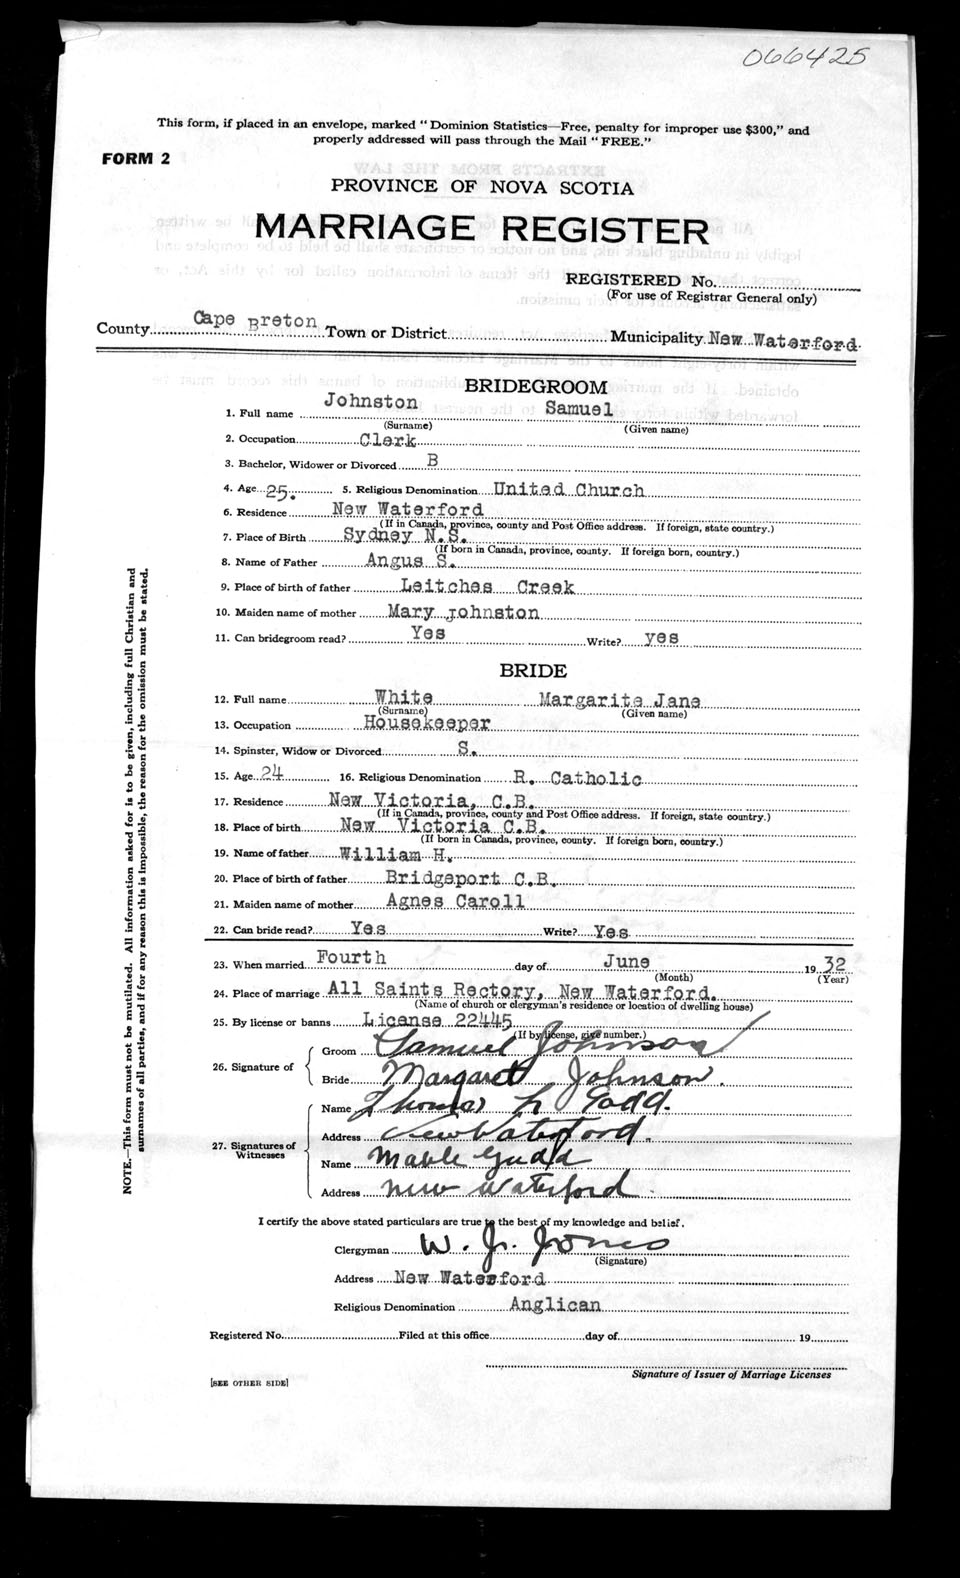 066425
This form, if placed in an envelope, marked "Dominion Statistics—Free, penalty for improper use $300," and
properly addressed will pass through the Mail "FREE."
FORM 2
PROVINCE OF NOVA SCOTIA
MARRIAGE REGISTER
REGISTERED No.
(For use of Registrar General only)
County Cape Breton Town or District Municipality New Waterford
BRIDEGROOM
1. Full name Johnston Samuel
(Surname) (Given name)
2. Occupation Clerk
3. Bachelor, Widower or Divorced B
4. Age 25. 5. Religious Denomination United Church
6. Residence New Waterford
(If in Canada, province, county and Post Office address. If foreign, state country.)
7. Place of Birth Sydney N.S.
(If born in Canada, province, county. If foreign born, country.)
8. Name of Father Angus S.
9. Place of birth of father Leitches Creek
10. Maiden name of mother Mary Johnston
11. Can bridegroom read? Yes Write? yes
BRIDE
12. Full name White Margarite Jane
(Surname) (Given name)
13. Occupation Housekeeper
14. Spinster, Widow or Divorced S.
15. Age 24 16. Religious Denomination R. Catholic
17. Residence New Victoria, C.B.
(If in Canada, province, county and Post Office address. If foreign, state country.)
18. Place of birth New Victoria C.B.
(If born in Canada, province, county. If foreign born, country.)
19. Name of father William H.
20. Place of birth of father Bridgeport C.B.
21. Maiden name of mother Agnes Caroll
22. Can bride read? Yes Write? Yes
23. When married Fourth day of June 1932
(Month) (Year)
24. Place of marriage All Saints Rectory, New Waterford.
(Name of church or clergyman's residence or location of dwelling house)
25. By license or banns License 22445
(If by license, give number.)
26. Signature of
Groom Samuel Johnson
Bride Margaret Johnson.
27. Signatures of Witnesses
Name Thomas L Gadd.
Address New Waterford.
Name Mable Gadd
Address New Waterford
I certify the above stated particulars are true to the best of my knowledge and belief.
Clergyman W. J. Jones
(Signature)
Address New Waterford
Religious Denomination Anglican
Registered No. Filed at this office day of 19
Signature of Issuer of Marriage Licenses
[SEE OTHER SIDE]
NOTE.—This form must not be mutilated. All information asked for is to be given, including full Christian and
surnames of all parties, and if for any reason this is impossible, the reason for the omission must be stated.